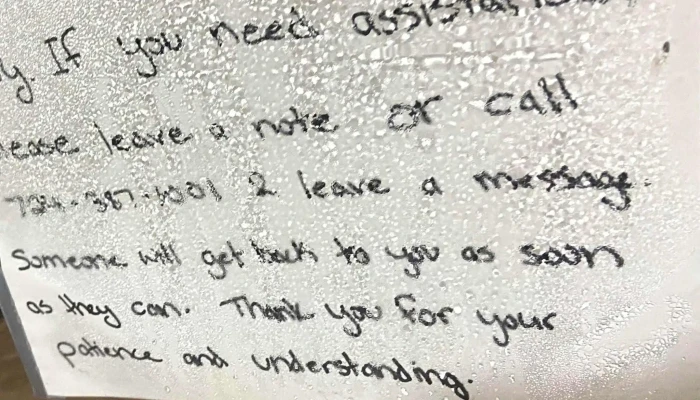 y. If you need assistan
ease leave a note or call
724-387-1001 & leave a message.
Someone will get back to you as soon
as they can. Thank you for your
patience and understanding.